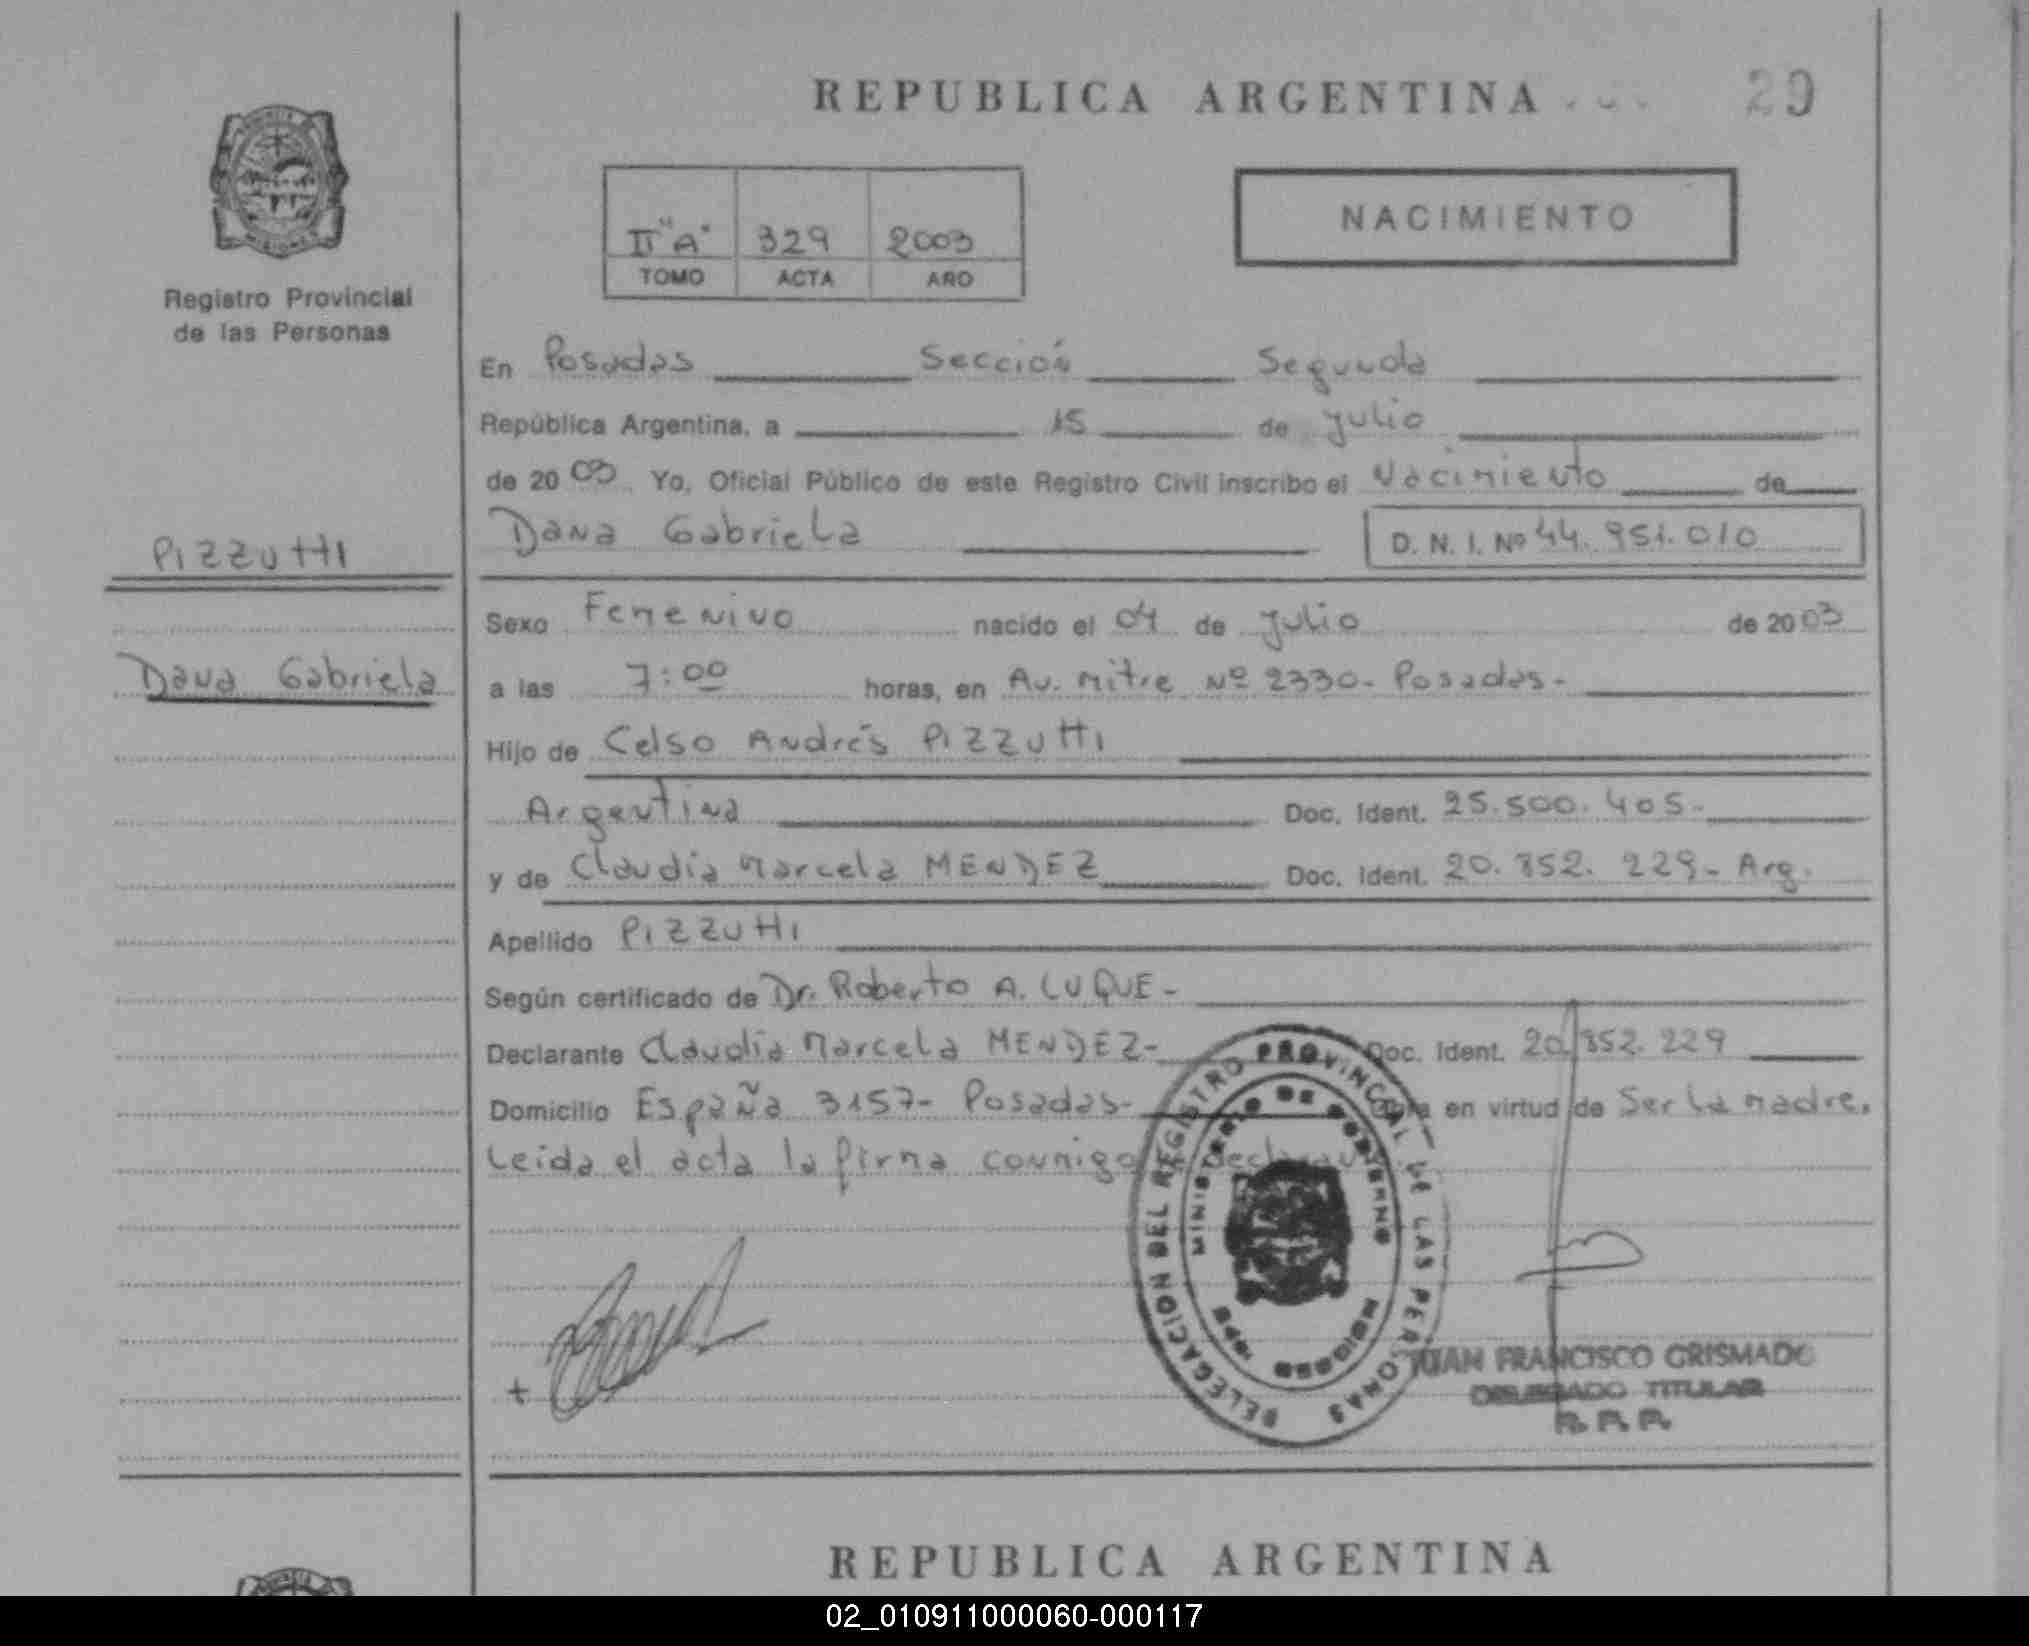 REPUBLICA ARGENTINA
29
II "A" 329 2003
TOMO ACTA AÑO
NACIMIENTO
Registro Provincial
de las Personas
En Posadas Sección Segunda
República Argentina, a 15 de Julio
de 2003 Yo, Oficial Público de este Registro Civil inscribo el Nacimiento de
Dana Gabriela D. N. I. Nº 44.951.010
PIZZUTTI
Sexo Femenino nacido el 04 de Julio de 2003
Dana Gabriela
a las 7:00 horas, en Av. Mitre Nº 2330- Posadas-
Hijo de Celso Andrés PIZZUTTI
Argentina Doc. Ident. 25.500.405-
y de Claudia Marcela MENDEZ Doc. Ident. 20.852.229- Arg.
Apellido PIZZUTTI
Según certificado de Dr. Roberto A. LUQUE-
Declarante Claudia Marcela MENDEZ- Doc. Ident. 20.852.229
Domicilio España 3157- Posadas- Obra en virtud de Ser la madre.
Leida el acta la firma conmigo
DELEGACION DEL REGISTRO PROVINCIAL DE LAS PERSONAS
MINISTERIO DE GOBIERNO
MISIONES
JUAN FRANCISCO GRISMADO
DELEGADO TITULAR
R. P. P.
REPUBLICA ARGENTINA
02_010911000060-000117